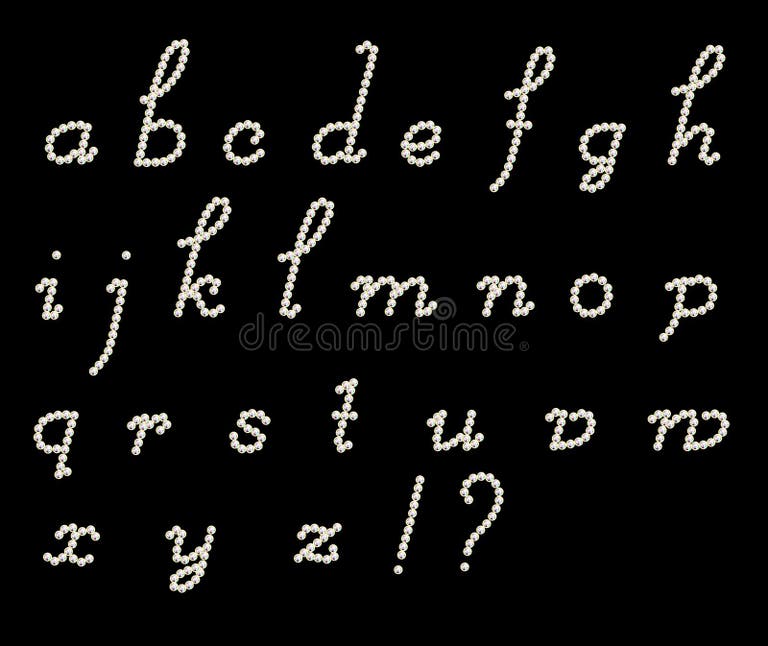 a b c d e f g h
i j k l m n o p
dreamstime
q r s t u v w
x y z ! ?